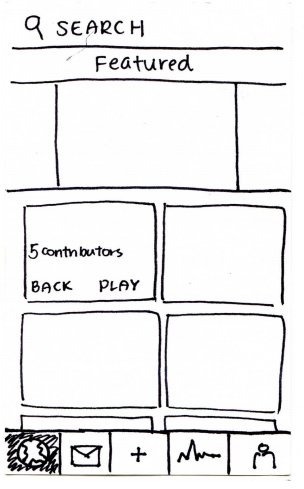 SEARCH
Featured
5 contributors
BACK PLAY
+